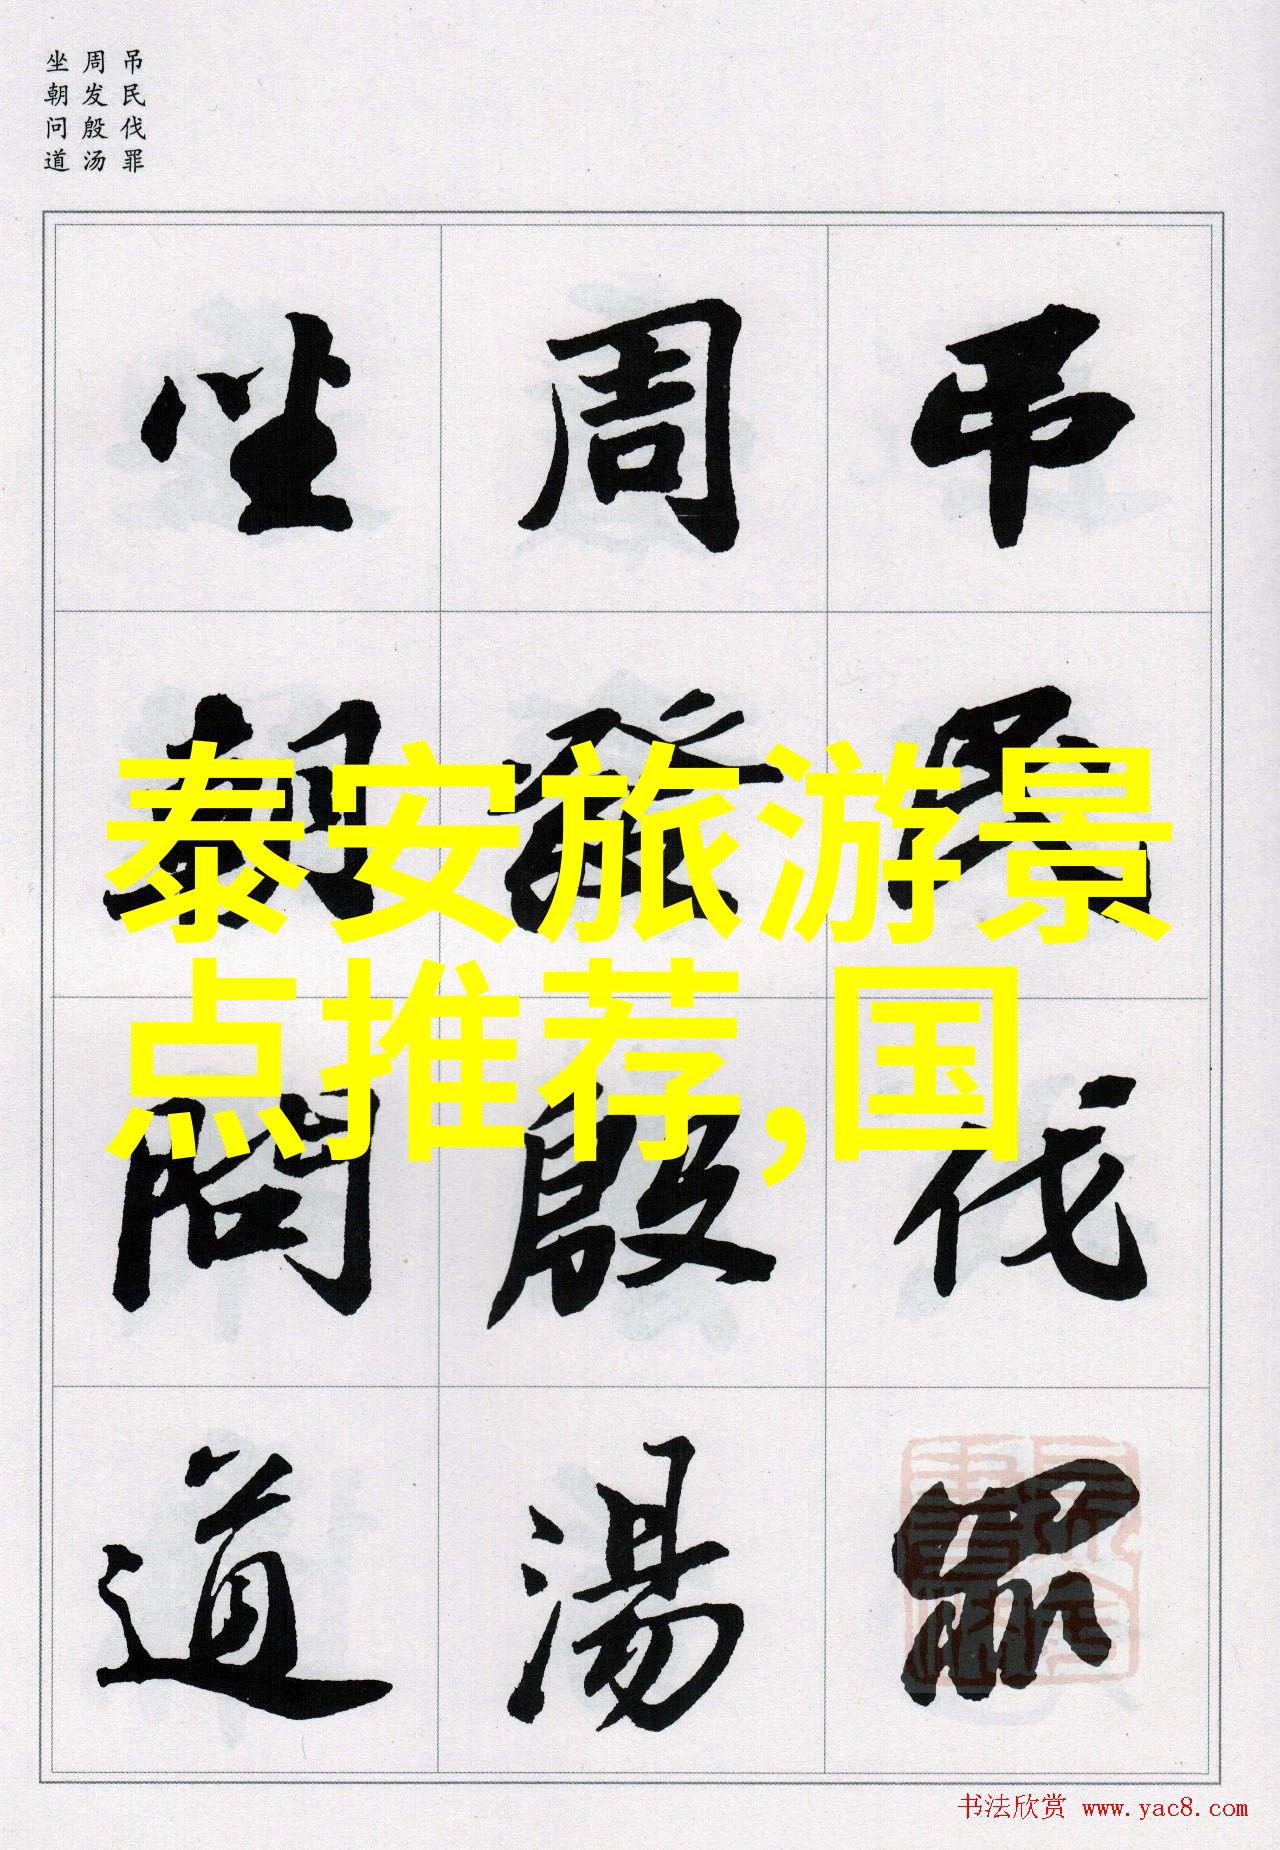 吊民伐罪
周发殷汤
坐朝问道
吊民伐罪
周發殷湯
坐朝問道
泰安旅游景
点推荐,国
书法欣赏 www.yac8.com